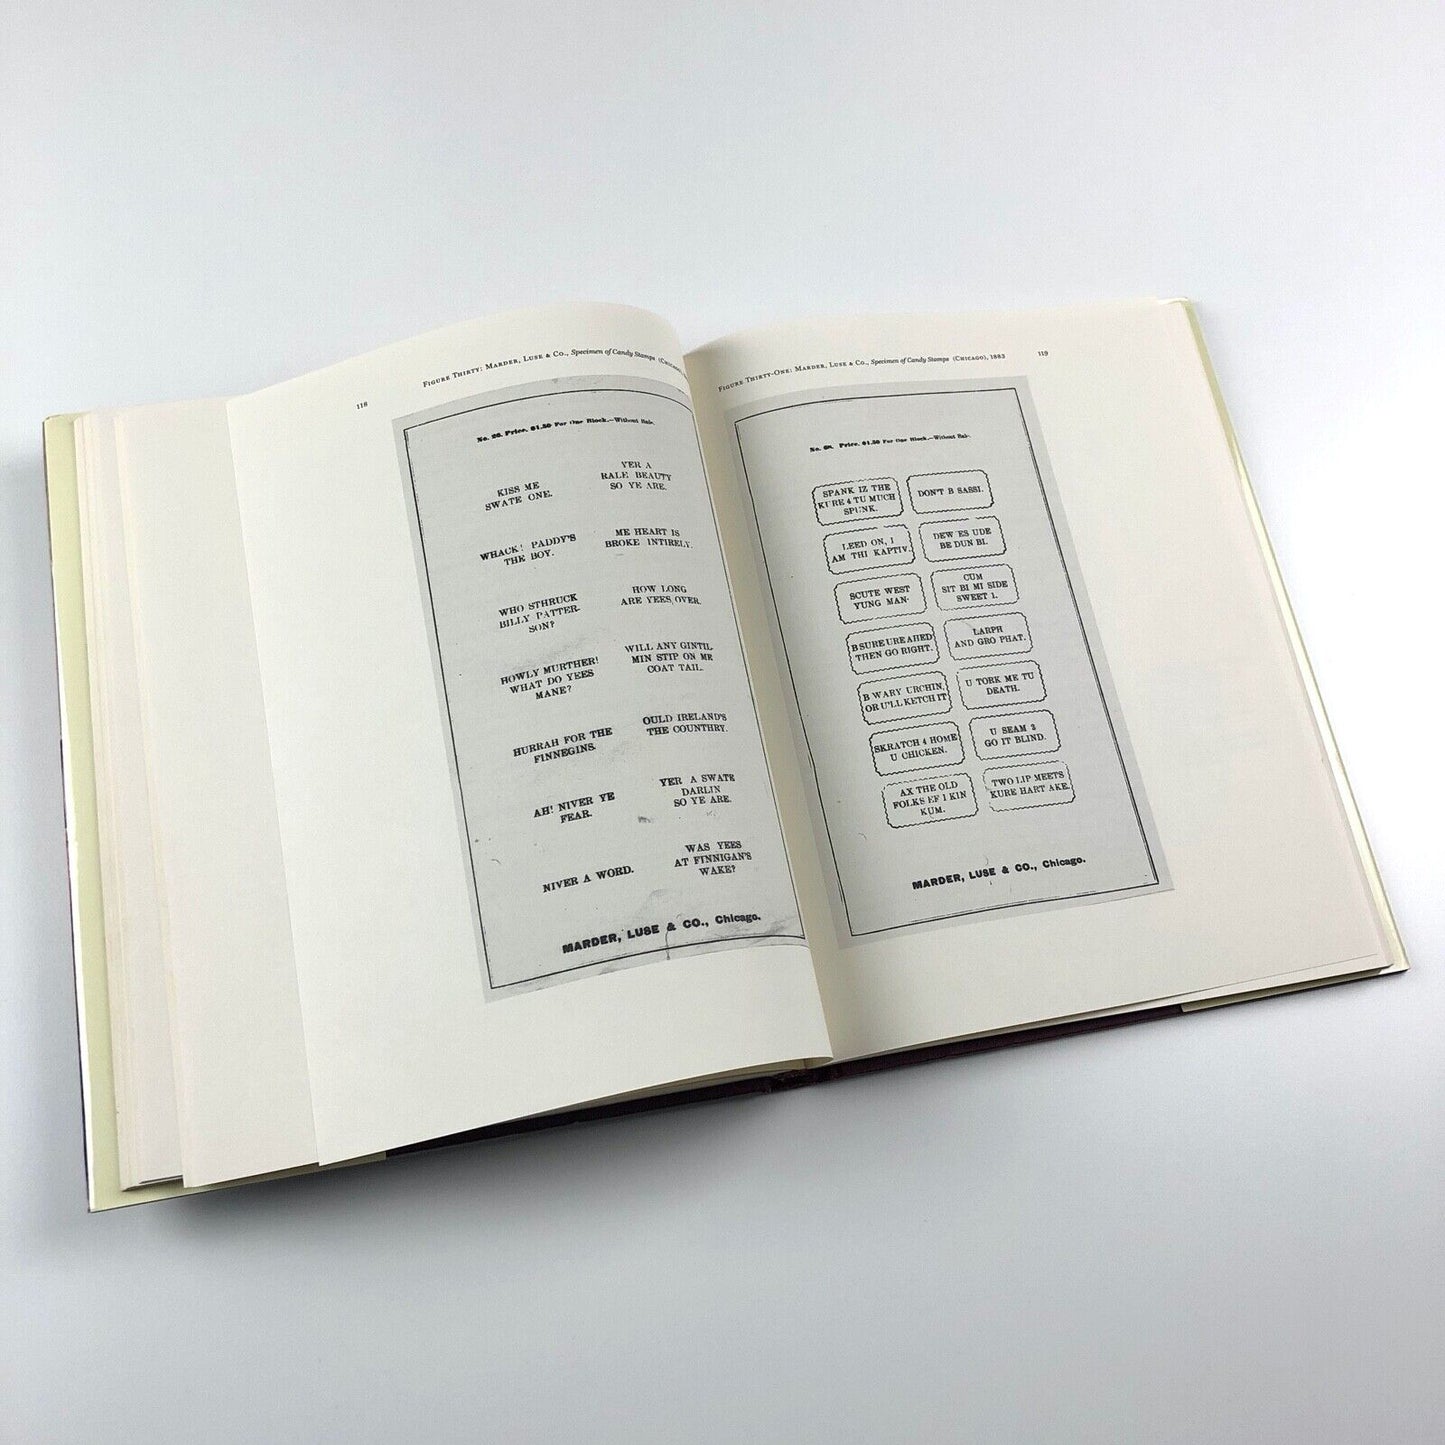 118
FIGURE THIRTY: MARDER, LUSE & CO., Specimen of Candy Stamps (CHICAGO),
No. 26. Price, $1.50 For One Block.—Without Bale.
KISS ME
SWATE ONE.
YER A
RALE BEAUTY
SO YE ARE.
WHACK! PADDY'S
THE BOY.
ME HEART IS
BROKE INTIRELY.
WHO STHRUCK
BILLY PATTER-
SON?
HOW LONG
ARE YEES OVER.
HOWLY MURTHER!
WHAT DO YEES
MANE?
WILL ANY GINTIL
MIN STIP ON ME
COAT TAIL.
HURRAH FOR THE
FINNEGINS.
OULD IRELAND'S
THE COUNTHRY.
AH! NIVER YE
FEAR.
YER A SWATE
DARLIN
SO YE ARE.
NIVER A WORD.
WAS YEES
AT FINNIGAN'S
WAKE?
MARDER, LUSE & CO., Chicago.
FIGURE THIRTY-ONE: MARDER, LUSE & CO., Specimen of Candy Stamps (CHICAGO), 1883
119
Price, $1.50 For One Block.—Without Bale.
SPANK IZ THE
KURE 4 TU MUCH
SPUNK.
DON'T B SASSI.
LEED ON, I
AM THI KAPTIV.
DEW ES UDE
BE DUN BI.
SCUTE WEST
YUNG MAN.
CUM
SIT BI MI SIDE
SWEET 1.
B SURE URE AHED
THEN GO RIGHT.
LARPH
AND GRO PHAT.
B WARY URCHIN,
OR U'LL KETCH IT
U TORK ME TU
DEATH.
SKRATCH 4 HOME
U CHICKEN.
U SEAM 2
GO IT BLIND.
AX THE OLD
FOLKS EF I KIN
KUM.
TWO LIP MEETS
KURE HART AKE.
MARDER, LUSE & CO., Chicago.